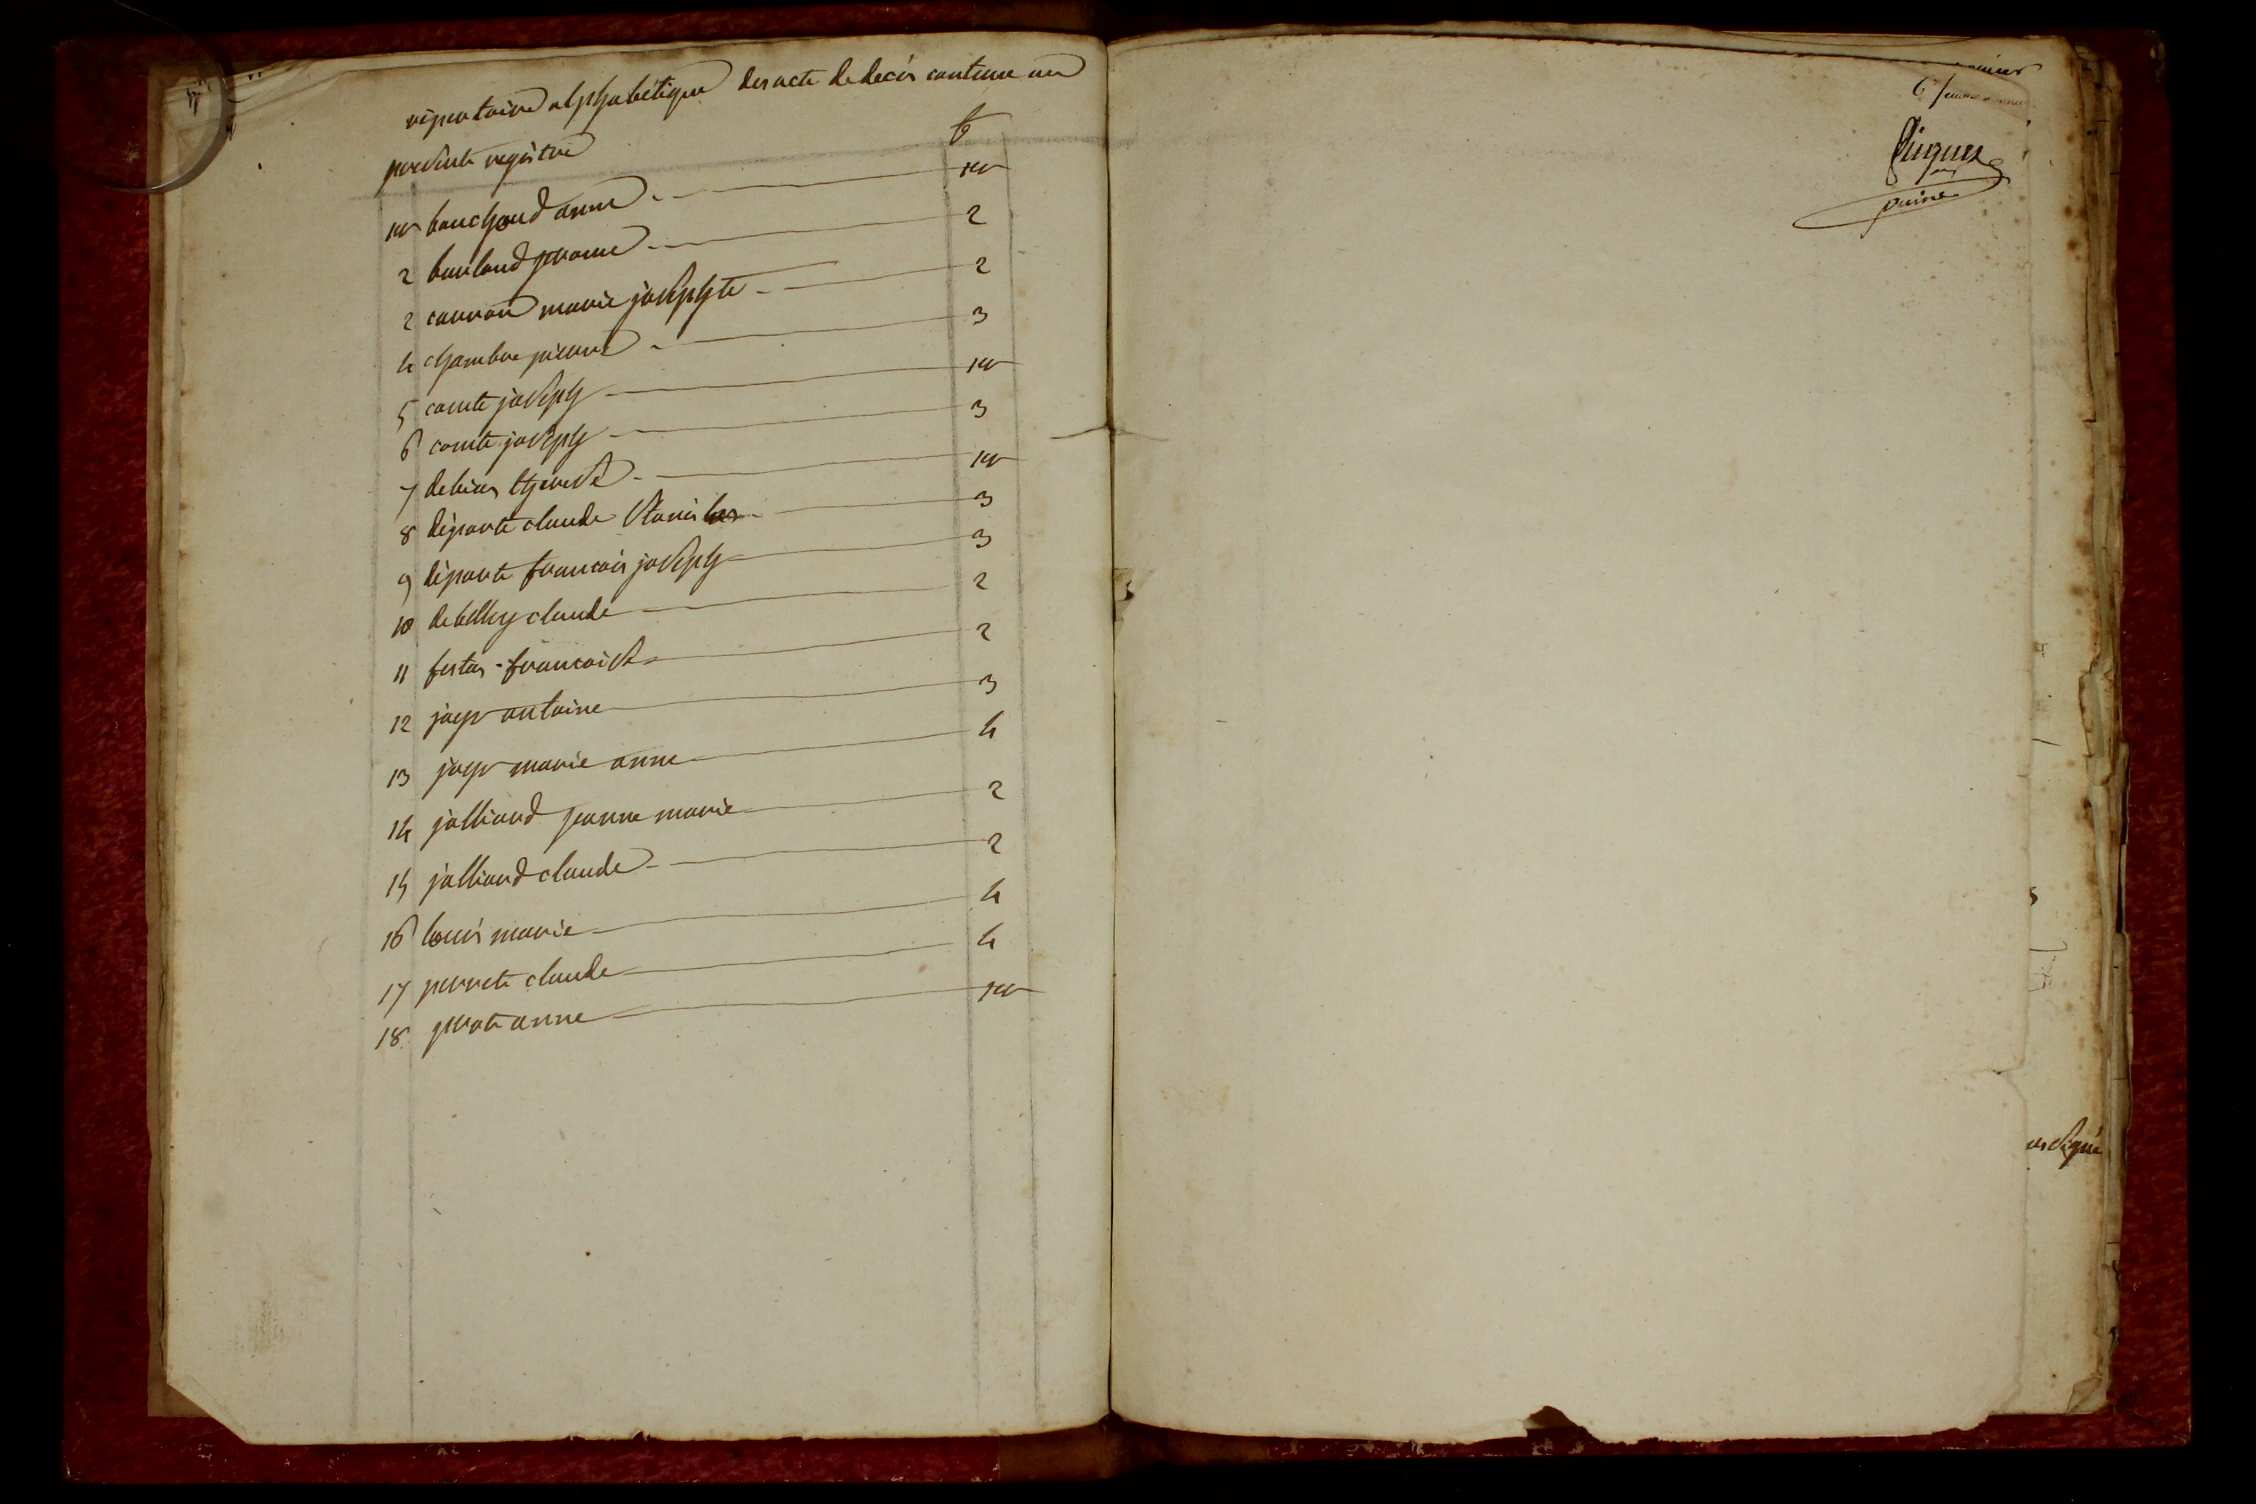 repertoire alphabétique des acte de decès contenue au
presente registre fo
1er bouchard anne 1er
2 burlaud jerome 2
2 carron marie josephte 2
4 chambre pierre 3
5 comte joseph 1er
6 comte joseph 3
7 debias therese 1er
8 déporte claude Stanislas 3
9 déporte francois joseph 3
10 debelley claude 2
11 festas francoise 2
12 jayr antoine 3
13 jayr marie anne 4
14 jalliard jeanne marie 2
15 jalliard claude 2
16 louis marie 4
17 perrete claude 4
18 prote anne 1er
6
maire